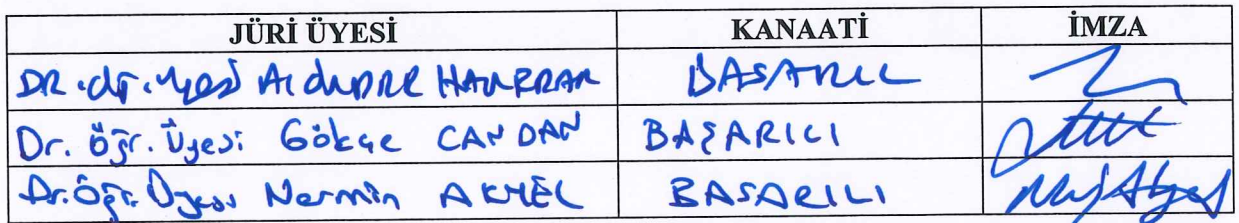 JÜRİ ÜYESİ KANAATİ İMZA
DR. öğr. üyesi BAŞARILI
Dr. Öğr. Üyesi Gökçe CANDAN BAŞARILI
Dr. Öğr. Üyesi Nermin AKYEL BASARILI